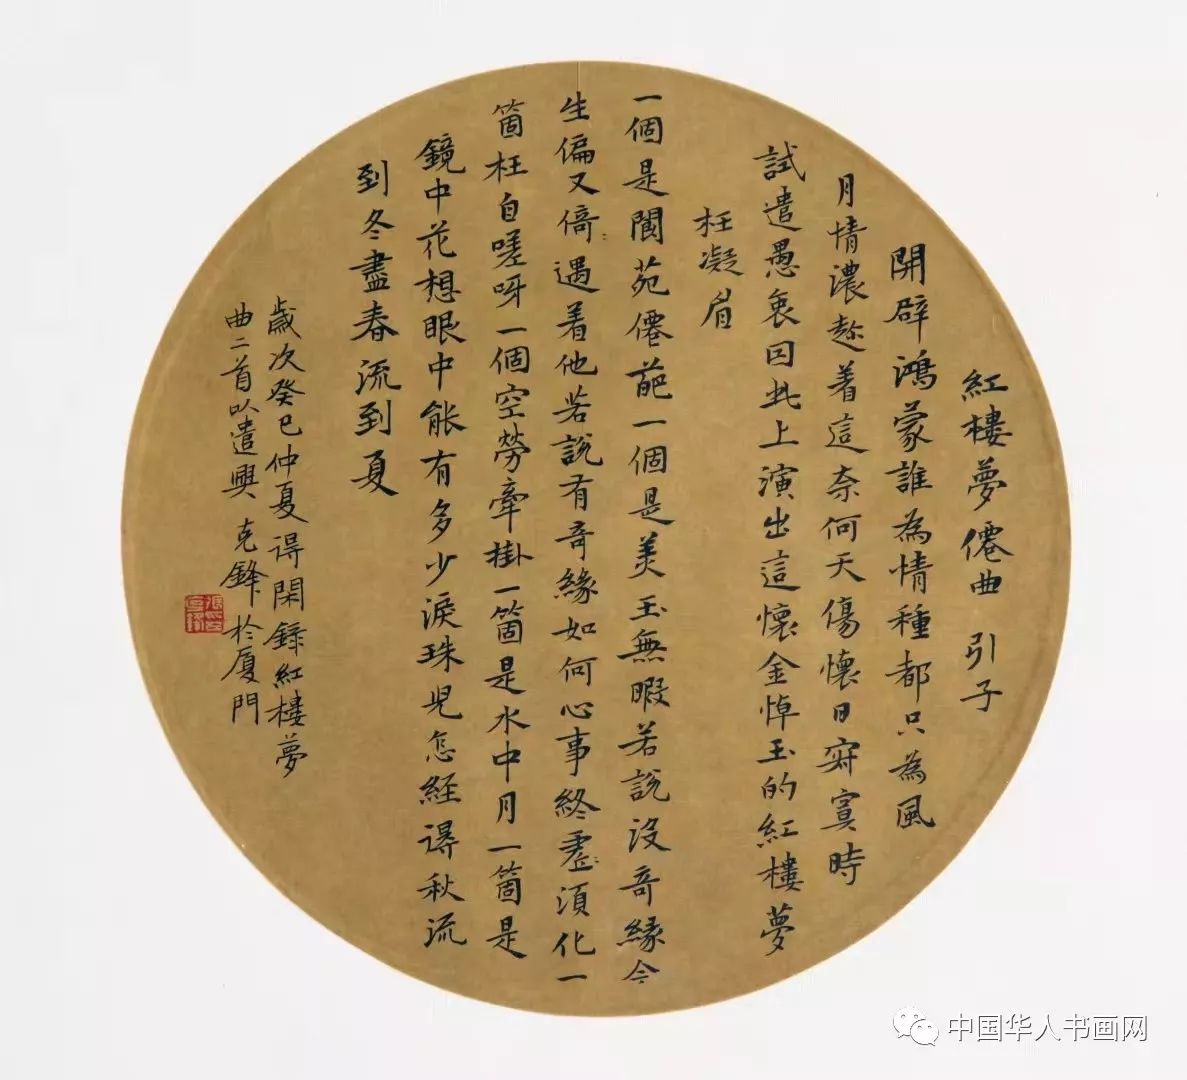 紅樓夢僊曲 引子
開辟鴻蒙誰為情種都只為風
月情濃趂着這奈何天傷懷日寂寞時
試遣愚衷因此上演出這懷金悼玉的紅樓夢
枉凝眉
一個是閬苑僊葩一個是美玉無暇若說沒奇緣今
生偏又倚遇着他若說有奇緣如何心事終虛須化一
箇枉自嗟呀一個空勞牽掛一箇是水中月一箇是
鏡中花想眼中能有多少淚珠兒怎經得秋流
到冬盡春流到夏
歲次癸巳仲夏得閑錄紅樓夢
曲二首以遣興 克鋒於廈門
中国华人书画网